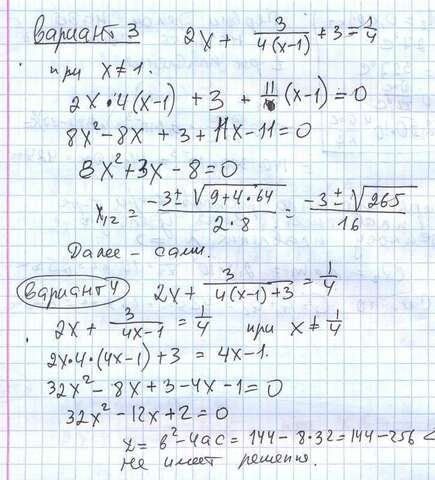 вариант 3 2x + 3/(4(x-1)) + 3 = 1/4
при x ≠ 1.
2x·4(x-1) + 3 + 11(x-1) = 0
8x² - 8x + 3 + 11x - 11 = 0
8x² + 3x - 8 = 0
x₁,₂ = (-3 ± √(9+4·64))/(2·8) = (-3 ± √265)/16
Далее - сами.
вариант 4 2x + 3/(4(x-1)+3) = 1/4
2x + 3/(4x-1) = 1/4 при x ≠ 1/4
2x·4·(4x-1) + 3 = 4x-1.
32x² - 8x + 3 - 4x - 1 = 0
32x² - 12x + 2 = 0
x = b² - 4ac = 144 - 8·32 = 144 - 256 <
не имеет решения.